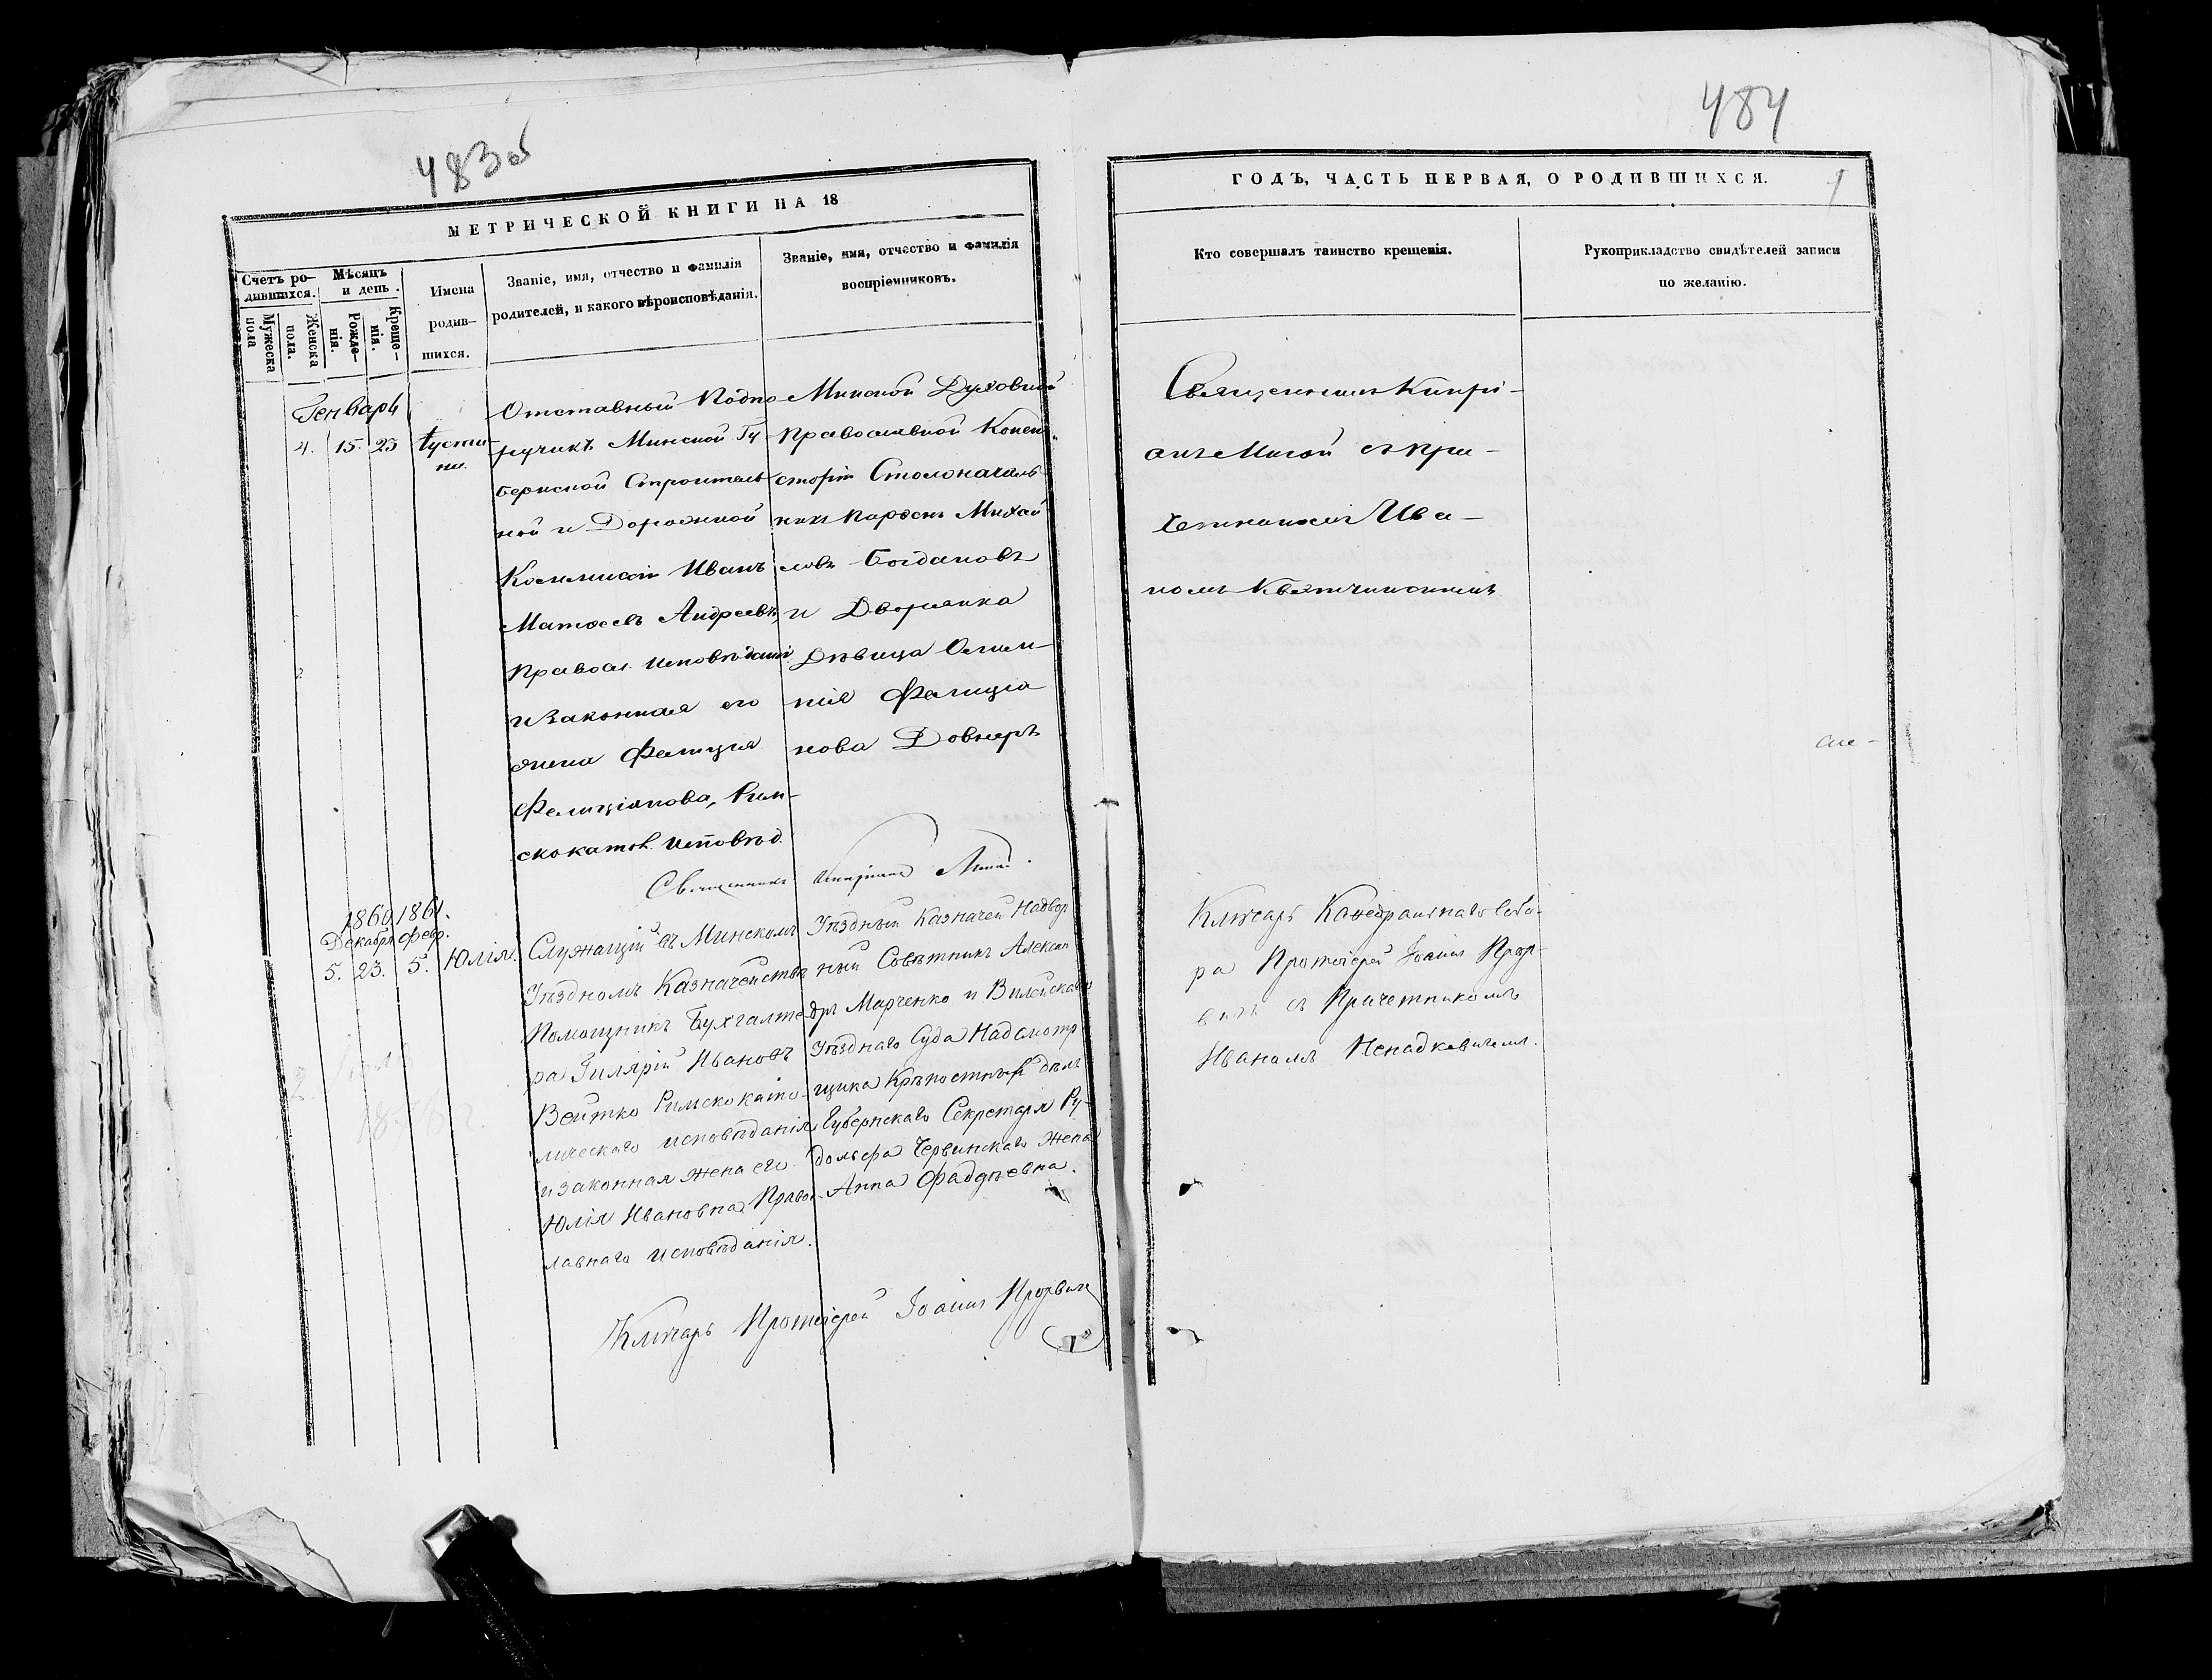 483об
МЕТРИЧЕСКОЙ КНИГИ НА 18
Счетъ ро-
дившихся.
Мужеска
пола
Женска
пола.
Мѣсяцъ
и день.
Рожде-
нія.
Креще-
нія.
Имена
родив-
шихся.
Званіе, имя, отчество и фамилія
родителей, и какого вѣроисповѣданія.
Званіе, имя, отчество и фамилія
воспріемниковъ.
Генварь
4. 15. 23
Іусти-
на.
Отставный Подпо-
ручикъ Минской Гу-
бернской Строитель-
ной и Дорожной
Коммисіи Иванъ
Матѳеевъ Андреевъ,
Правосл. исповѣданія
и законная его
жена Фелиція
Фелиціянова, Рим-
скокатол. исповѣд.
Минской Духовной
Православной Консис-
торіи Столоначаль-
никъ Михай
ловъ Богдановъ
и Дворянка
Дѣвица
нія Фелиція
нова Довнаръ
Священникъ
1860 1861.
Декабря Февр.
5. 23. 5.
Юлія.
Служащій въ Минскомъ
Уѣздномъ Казначействѣ
Помощникъ Бухгалте-
ра Гилярій Ивановъ
Войтко Римскокато-
лическаго исповѣданія
и законная жена его
Юлія Ивановна Правос-
лавнаго исповѣданія.
Уѣздный Казначей Надвор
ный Совѣтникъ Алексан
дръ Марченко и Вилейскаго
Уѣзднаго Суда Надсмотр-
щика Крѣпостныхъ дѣлъ
Губернскаго Секретаря Ру-
дольфа Червинскаго жена
Анна Фаддѣевна.
Ключарь Протоіерей Іоаннъ
484
ГОДЪ, ЧАСТЬ ПЕРВАЯ, О РОДИВШИХСЯ.
1
Кто совершалъ таинство крещенія.
Рукоприкладство свидѣтелей записи
по желанію.
Священникъ Кипрі-
анъ съ при-
четникомъ Ива-
номъ
Ключарь Каѳедральнаго Собо-
ра Протоіерей Іоаннъ
съ Причетникомъ
Иваномъ Ненадкевичемъ.